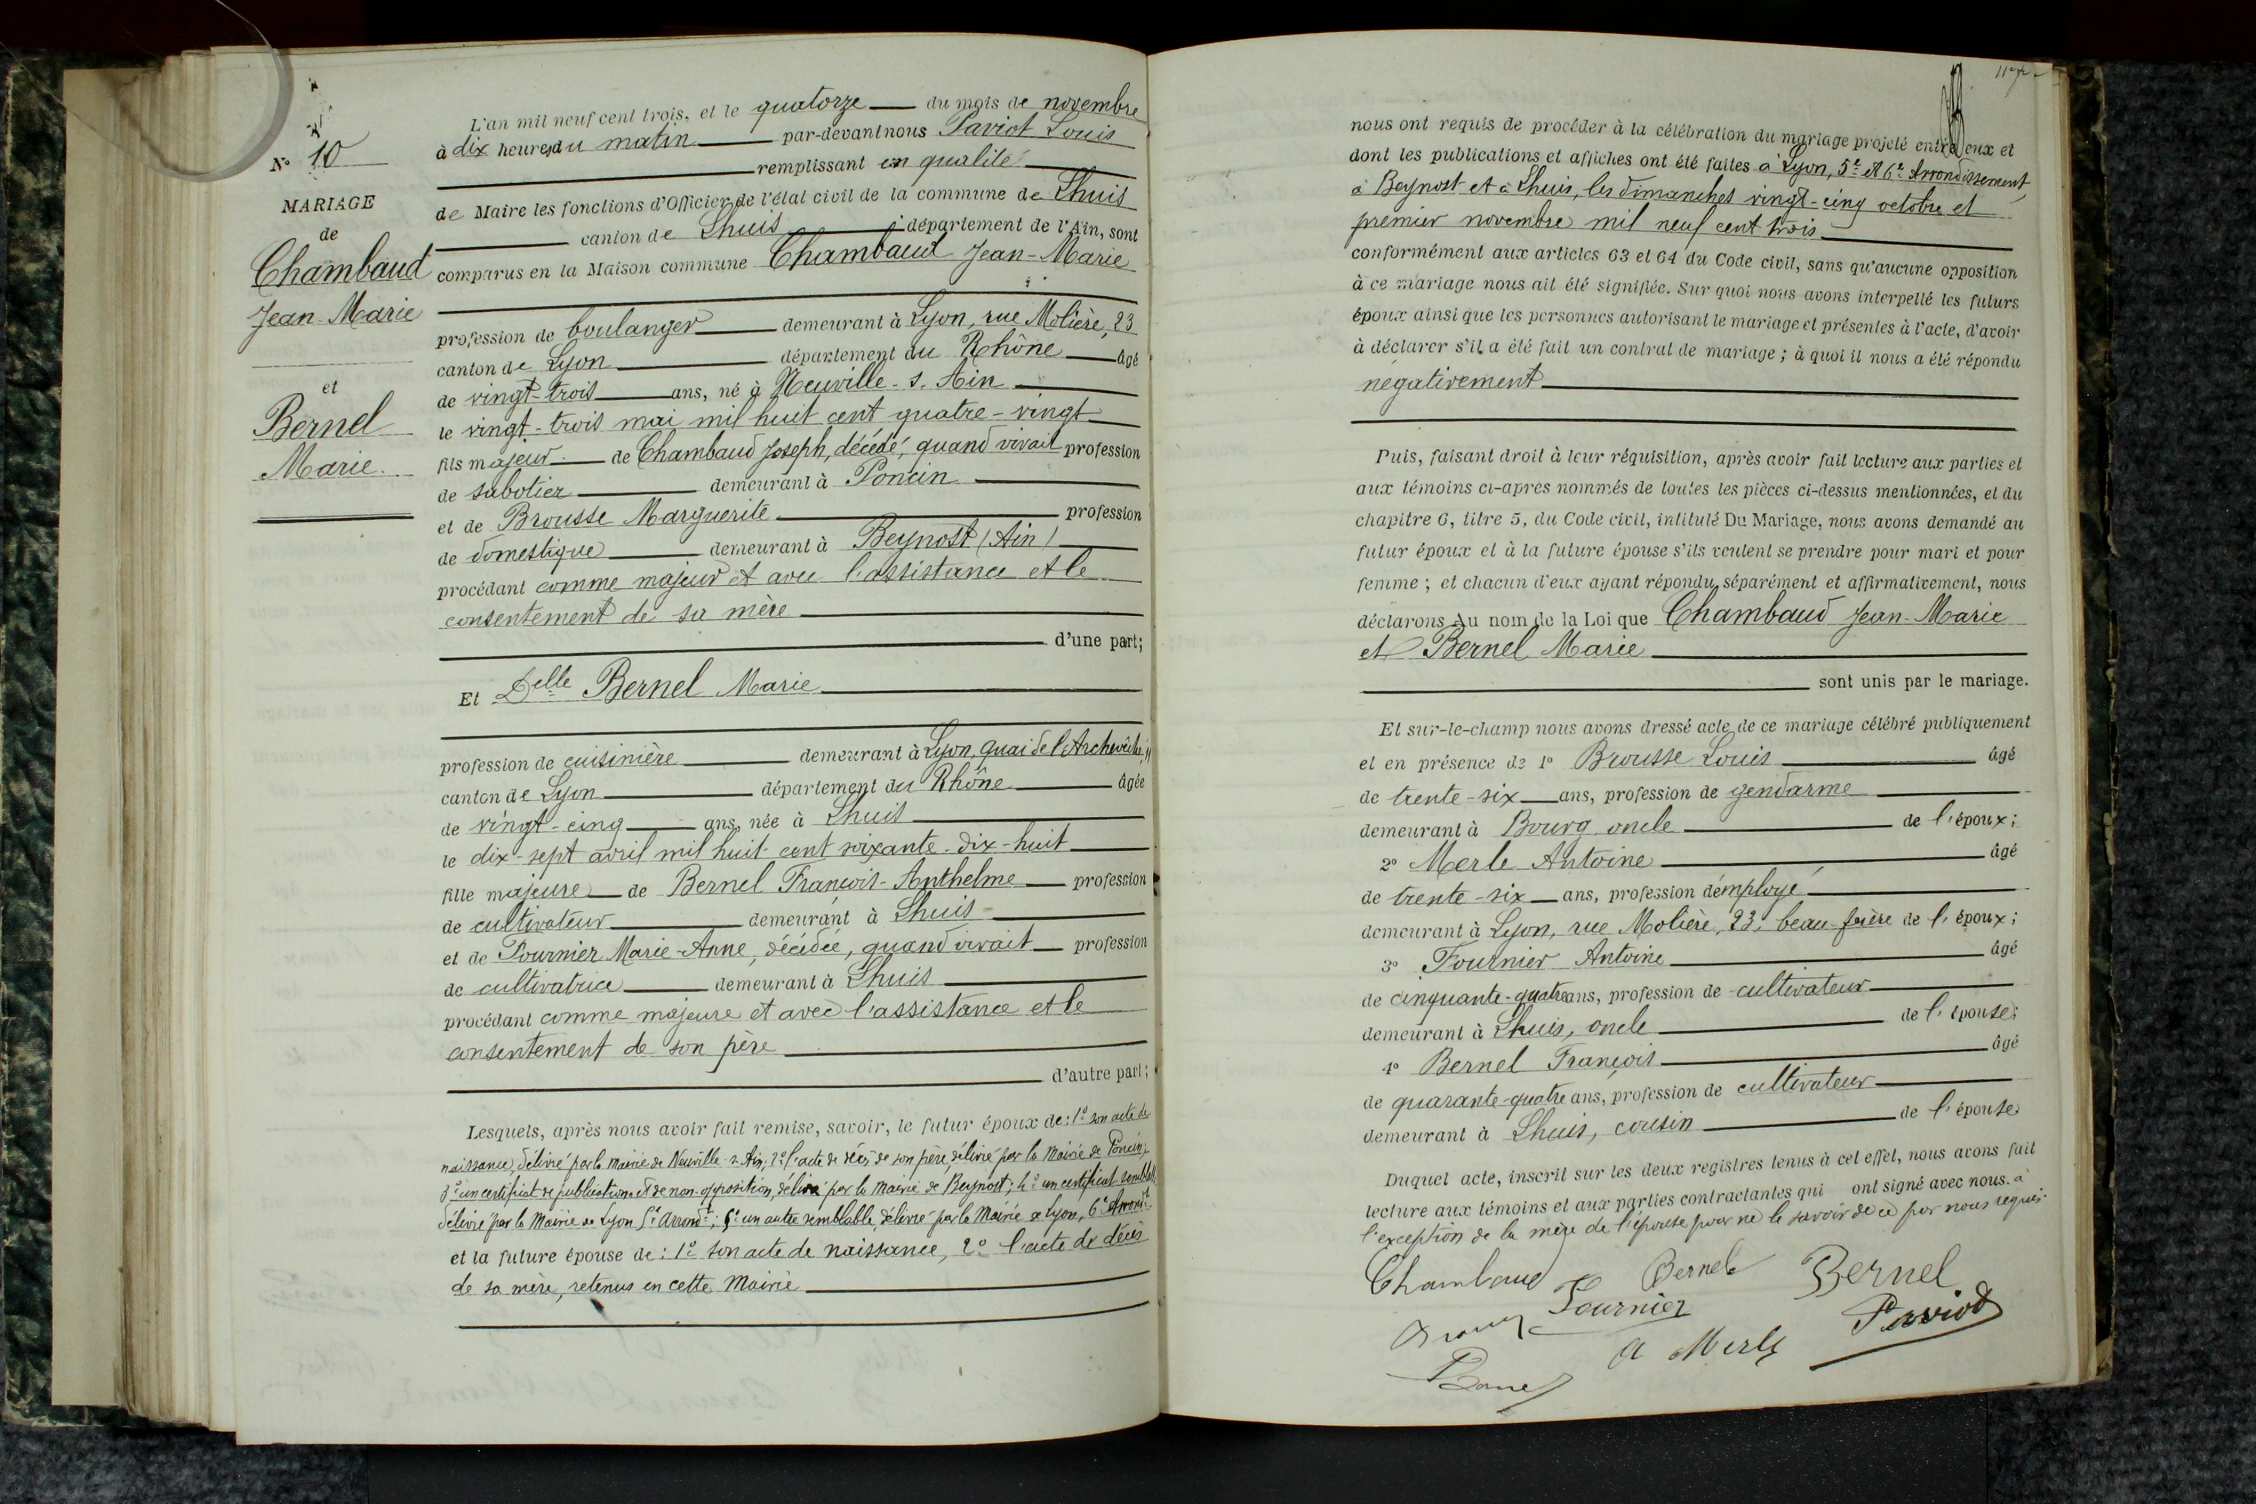 N° 10
MARIAGE
de
Chambaud
Jean-Marie
et
Bernel
Marie.
L'an mil neuf cent trois, et le quatorze du mois de novembre
à dix heures du matin par-devant nous Paviot Louis
remplissant en qualité
de Maire les fonctions d'Officier de l'état civil de la commune de Lhuis
canton de Lhuis département de l'Ain, sont
comparus en la Maison commune Chambaud Jean-Marie
profession de boulanger demeurant à Lyon, rue Molière, 23
canton de Lyon département du Rhône âgé
de vingt-trois ans, né à Neuville-s.-Ain
le vingt-trois mai mil huit cent quatre-vingt
fils majeur de Chambaud Joseph, décédé, quand vivait profession
de sabotier demeurant à Poncin
et de Brousse Marguerite profession
de domestique demeurant à Beynost (Ain)
procédant comme majeur et avec l'assistance et le
consentement de sa mère
d'une part;
Et Delle Bernel Marie
profession de cuisinière demeurant à Lyon, quai de l'Archevêché,
canton de Lyon département du Rhône âgée
de vingt-cinq ans, née à Lhuis
le dix-sept avril mil huit cent soixante-dix-huit
fille majeure de Bernel François-Anthelme profession
de cultivateur demeurant à Lhuis
et de Fournier Marie-Anne, décédée, quand vivait profession
de cultivatrice demeurant à Lhuis
procédant comme majeure et avec l'assistance et le
consentement de son père
d'autre part;
Lesquels, après nous avoir fait remise, savoir, le futur époux de: 1° son acte de
naissance, délivré par la Mairie de Neuville-s-Ain; 2° l'acte de décès de son père, délivré par la Mairie de Poncin;
3° un certificat de publication et de non-opposition, délivré par la Mairie de Beynost; 4° un certificat semblable
délivré par la Mairie de Lyon 5e Arrondt; 5° un autre semblable, délivré par la Mairie de Lyon, 6e Arrondt
et la future épouse de: 1° son acte de naissance, 2° l'acte de décès
de sa mère, retenus en cette Mairie
nous ont requis de procéder à la célébration du mariage projeté entre eux et
dont les publications et affiches ont été faites à Lyon, 5e et 6e Arrondissement,
à Beynost et à Lhuis, les dimanches vingt-cinq octobre et
premier novembre mil neuf cent trois
conformément aux articles 63 et 64 du Code civil, sans qu'aucune opposition
à ce mariage nous ait été signifiée. Sur quoi nous avons interpellé les futurs
époux ainsi que les personnes autorisant le mariage et présentes à l'acte, d'avoir
à déclarer s'il a été fait un contrat de mariage; à quoi il nous a été répondu
négativement
Puis, faisant droit à leur réquisition, après avoir fait lecture aux parties et
aux témoins ci-après nommés de toutes les pièces ci-dessus mentionnées, et du
chapitre 6, titre 5, du Code civil, intitulé Du Mariage, nous avons demandé au
futur époux et à la future épouse s'ils veulent se prendre pour mari et pour
femme; et chacun d'eux ayant répondu séparément et affirmativement, nous
déclarons Au nom de la Loi que Chambaud Jean-Marie
et Bernel Marie
sont unis par le mariage.
Et sur-le-champ nous avons dressé acte de ce mariage célébré publiquement
et en présence de 1° Brousse Louis âgé
de trente-six ans, profession de gendarme
demeurant à Bourg oncle de l'époux;
2° Merle Antoine âgé
de trente-six ans, profession d'employé
demeurant à Lyon, rue Molière, 23, beau-frère de l'époux;
3° Fournier Antoine âgé
de cinquante-quatre ans, profession de cultivateur
demeurant à Lhuis, oncle de l'épouse;
4° Bernel François âgé
de quarante-quatre ans, profession de cultivateur
demeurant à Lhuis, cousin de l'épouse
Duquel acte, inscrit sur les deux registres tenus à cet effet, nous avons fait
lecture aux témoins et aux parties contractantes qui ont signé avec nous. à
l'exception de la mère de l'épouse pour ne le savoir de ce par nous requis.
Chambaud Bernel Bernel
Fournier Paviot
A Merle